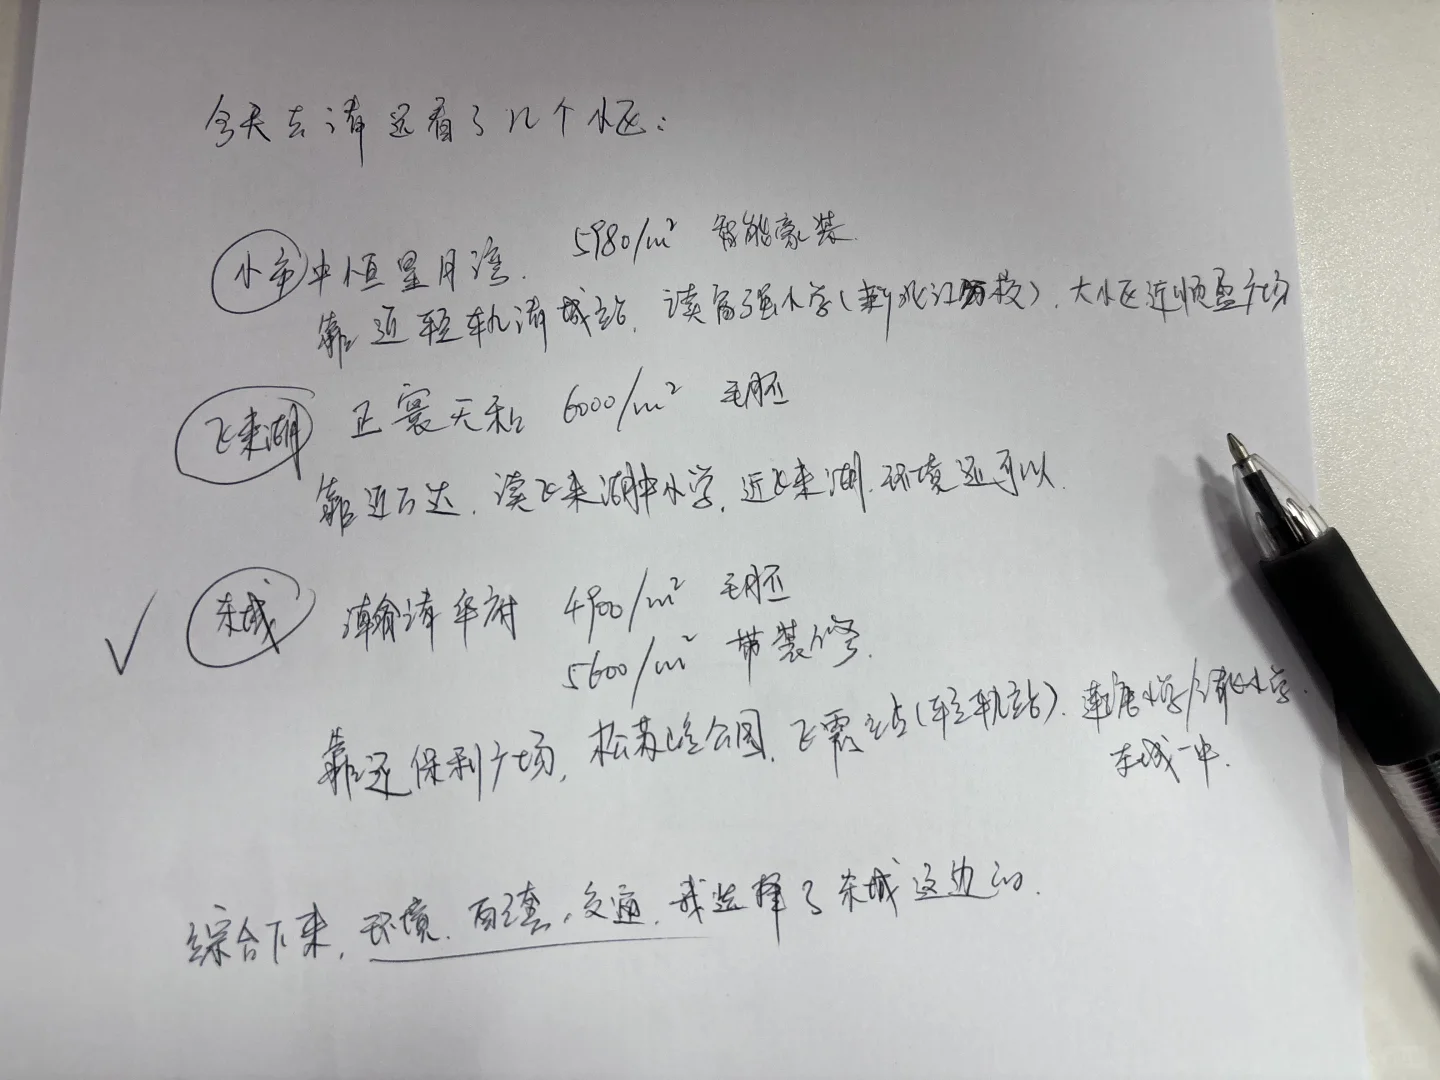 今天去清远看了几个小区:
小市 中恒星月湾. 5980/m² 智能豪装.
靠近轻轨清城站, 读富强小学(新北江 校). 大小区近顺盈广场
飞来湖 正寰天和 6000/m² 毛胚
靠近万达, 读飞来湖中小学, 近飞来湖. 环境还可以.
✓ 东城 瀚清华府 4900/m² 毛胚
5600/m² 带装修.
靠近保利广场, 松苏岭公园, 飞霞站(轻轨站). 莲塘小学/清飞小学.
东城一中.
综合下来, 环境. 配套. 交通, 我选择了东城这边的.